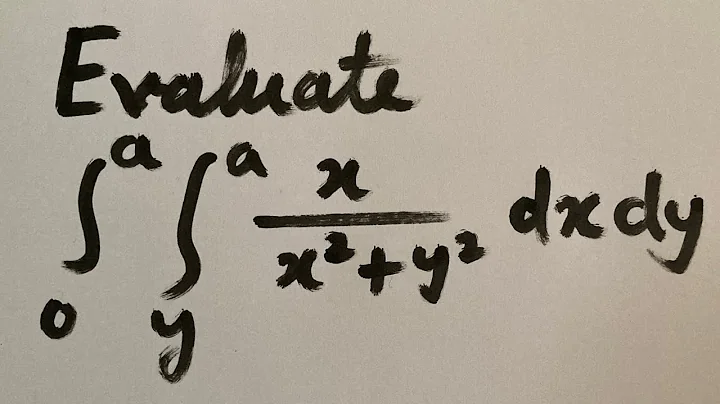 Evaluate
∫₀ᵃ ∫ᵧᵃ x/(x²+y²) dx dy